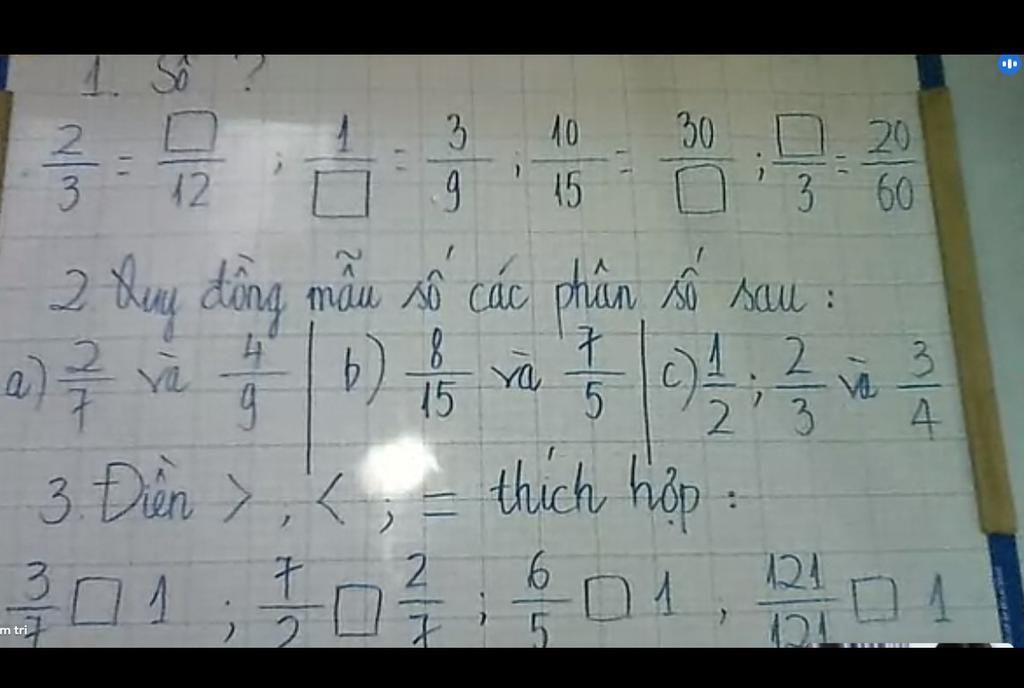 1. Số ?
2/3 = □/12 ; 1/□ = 3/9 ; 10/15 = 30/□ ; □/3 = 20/60
2. Quy đồng mẫu số các phân số sau :
a) 2/7 và 4/9 | b) 8/15 và 7/5 | c) 1/2 ; 2/3 và 3/4
3. Điền > , < ; = thích hợp :
3/7 □ 1 ; 7/2 □ 2/7 ; 6/5 □ 1 , 121/121 □ 1
m tri